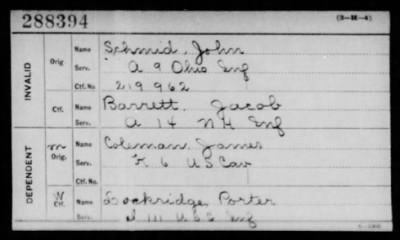 288394
(3-M-4)
INVALID
Orig
Name Schmid, John
Serv. A 9 Ohio Inf
Ctf. No. 219962
Ctf.
Name Barrett, Jacob
Serv. A 14 N H Inf
DEPENDENT
m
Orig.
Name Coleman, James
Serv. K 6 U S Cav
Ctf. No.
W
Ctf.
Name Lockridge, Porter
Serv. I 111 U.S.C. Inf